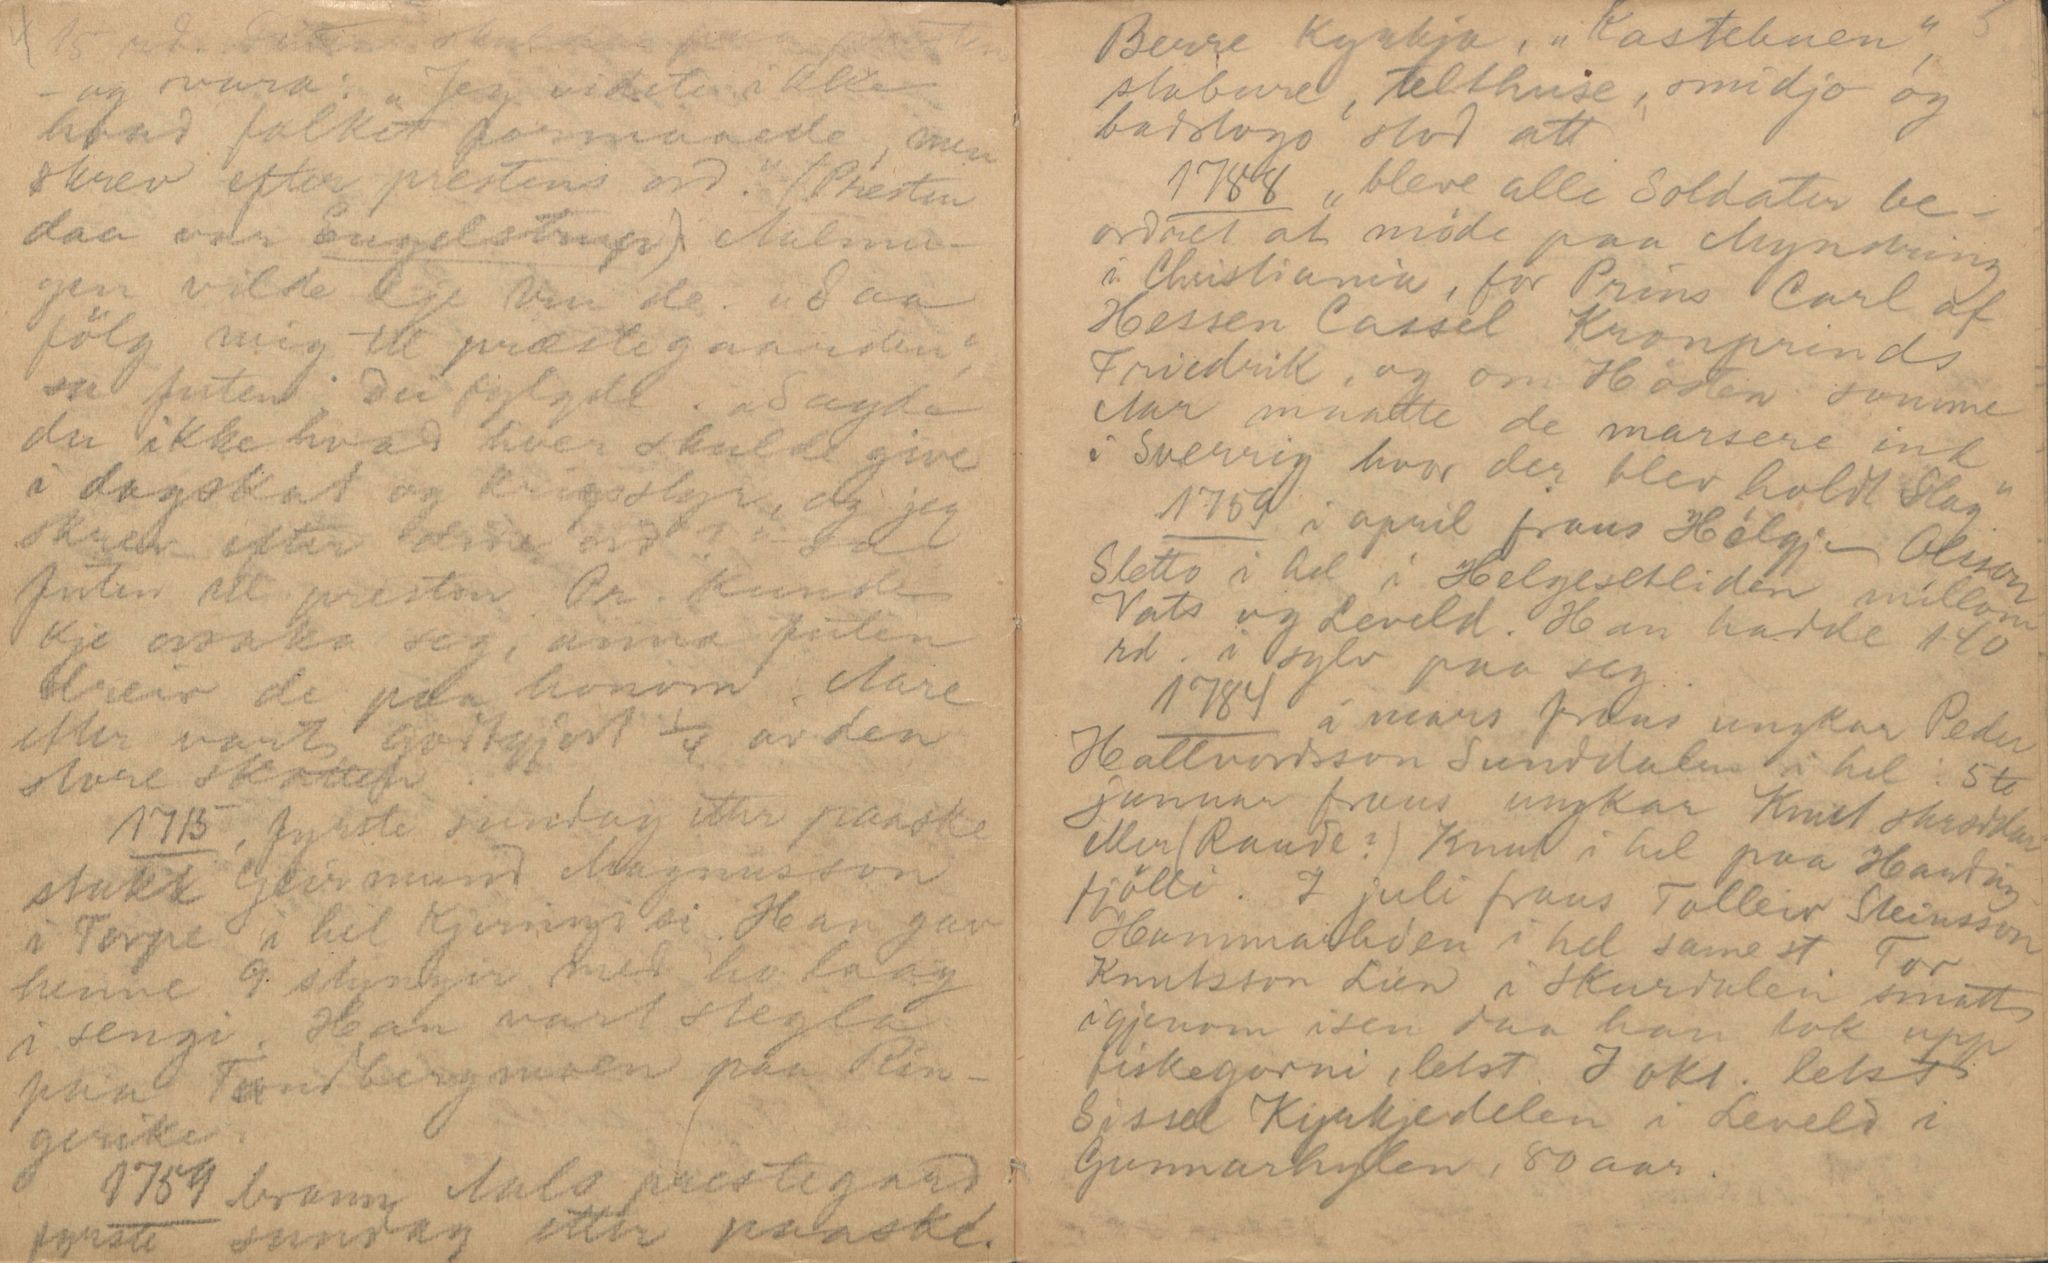 4
15 rd. Futen skulda paa presten
- og svara: „Jeg vidste ikke
hvad folket formaaede, men
skrev efter prestens ord." (Presten
daa var Engelstrup) Aalmu-
gen vilde
"Saa
fölg mig til præstegaarden",
sa futen. Dei fylgde. „Sagde
du ikke hvad hver skulde give
i dagskat og krigsstyr, og jeg
skrev efter dine ord?" sa
futen til presten. Pr. kunde
kje orsaka seg, anna futen
dreiv de paa honom. Aare
etter vart godtgjort 1/4 av den
store skatten.
1715, fyrste sundag etter paaske
stakk Geirmund Magnusson
i Torpe i hel kjeringi si. Han gav
henne 9 stynger med ho laag
i sengi. Han vart stegla
paa Tandbergmoen paa Rin-
gerike.
1759 brann Aals prestegard
fyrste sundag etter paaske.
5
Berre Kyrkja, „Kastebuen",
stabure, telthuse, smidjo og
badstogo stod att
1788 „bleve alle Soldater be-
ordret at möde paa Mynstring
i Christiania, for Prins Carl af
Hessen Cassel Kronprinds
Friedrik, og om Hösten samme
Aar maatte de marsere ind
i Sverrig hvor der blev holdt Slag"
1759 i april fraus Helgje Olsson
Sletto i hel i Helgesetliden millom
Vats og Leveld. Han hadde 140
rd. i sylv paa seg.
1784 i mars fraus ungkar Peder
Hallvordsson Sunddalen i hel. 5te
januar fraus ungkar Knut skrøddar
eller (Raude?) Knut i hel paa Hardang
fjölli. I juli fraus Tolleiv Steinsson
Hammarliden i hel samest. Tor
Knutsson Lien i Skurdalen smatt
igjenom isen daa han tok upp
fiskegorni, letst. I okt. letst
Sissel Kyrkjedelen i Leveld i
Gunnarhylen, 80 aar.